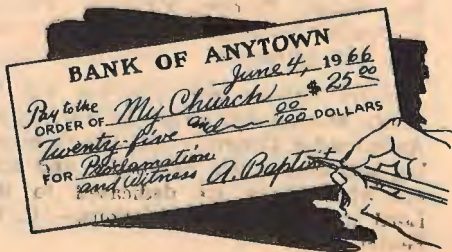 BANK OF ANYTOWN
June 4, 1966
Pay to the
ORDER OF My Church $ 25 00
Twenty-five and 00/100 DOLLARS
FOR Proclamation
and Witness A. Baptist